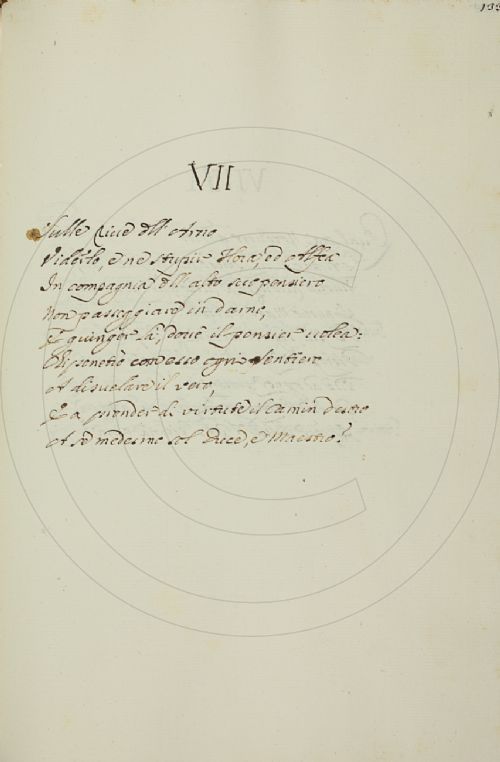 133
VII
Sulle Rive dell' Arno
Viderlo, e ne stupir Flora, ed Alfea
In compagnia dell' alto suo pensiero
Non passeggiare in darno,
E giunger là, dove il pensier volea:
Ei ponetrò con esso ogni sentiero
A disvelare il vero,
E a prender di virtute il camin destro
A sè medesmo sol Duce, e Maestro.